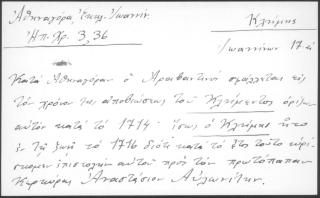 Ἀθηναγόρα, Ἐκκλ. Ἰωαννίν.
Ἠπ. Χρ. 3, 36
Κλήμης
Ἰωαννίνων 17
Κατὰ Ἀθηναγόραν ὁ Ἀραβαντινὸς σφάλλεται εἰς
τὸν χρόνον τῆς ἀποβιώσεως τοῦ Κλήμεντος ὁρίζων
αὐτὸν κατὰ τὸ 1714· ἴσως ὁ Κλήμης ἦτο
ἐν τῇ ζωῇ τὸ 1716 διότι κατὰ τὸ ἔτος τοῦτο εὑρί-
σκομεν ἐπιστολὴν αὐτοῦ πρὸς τὸν πρωτόπαπαν
Κερκύρας Ἀναστάσιον Αὐλωνίτην.